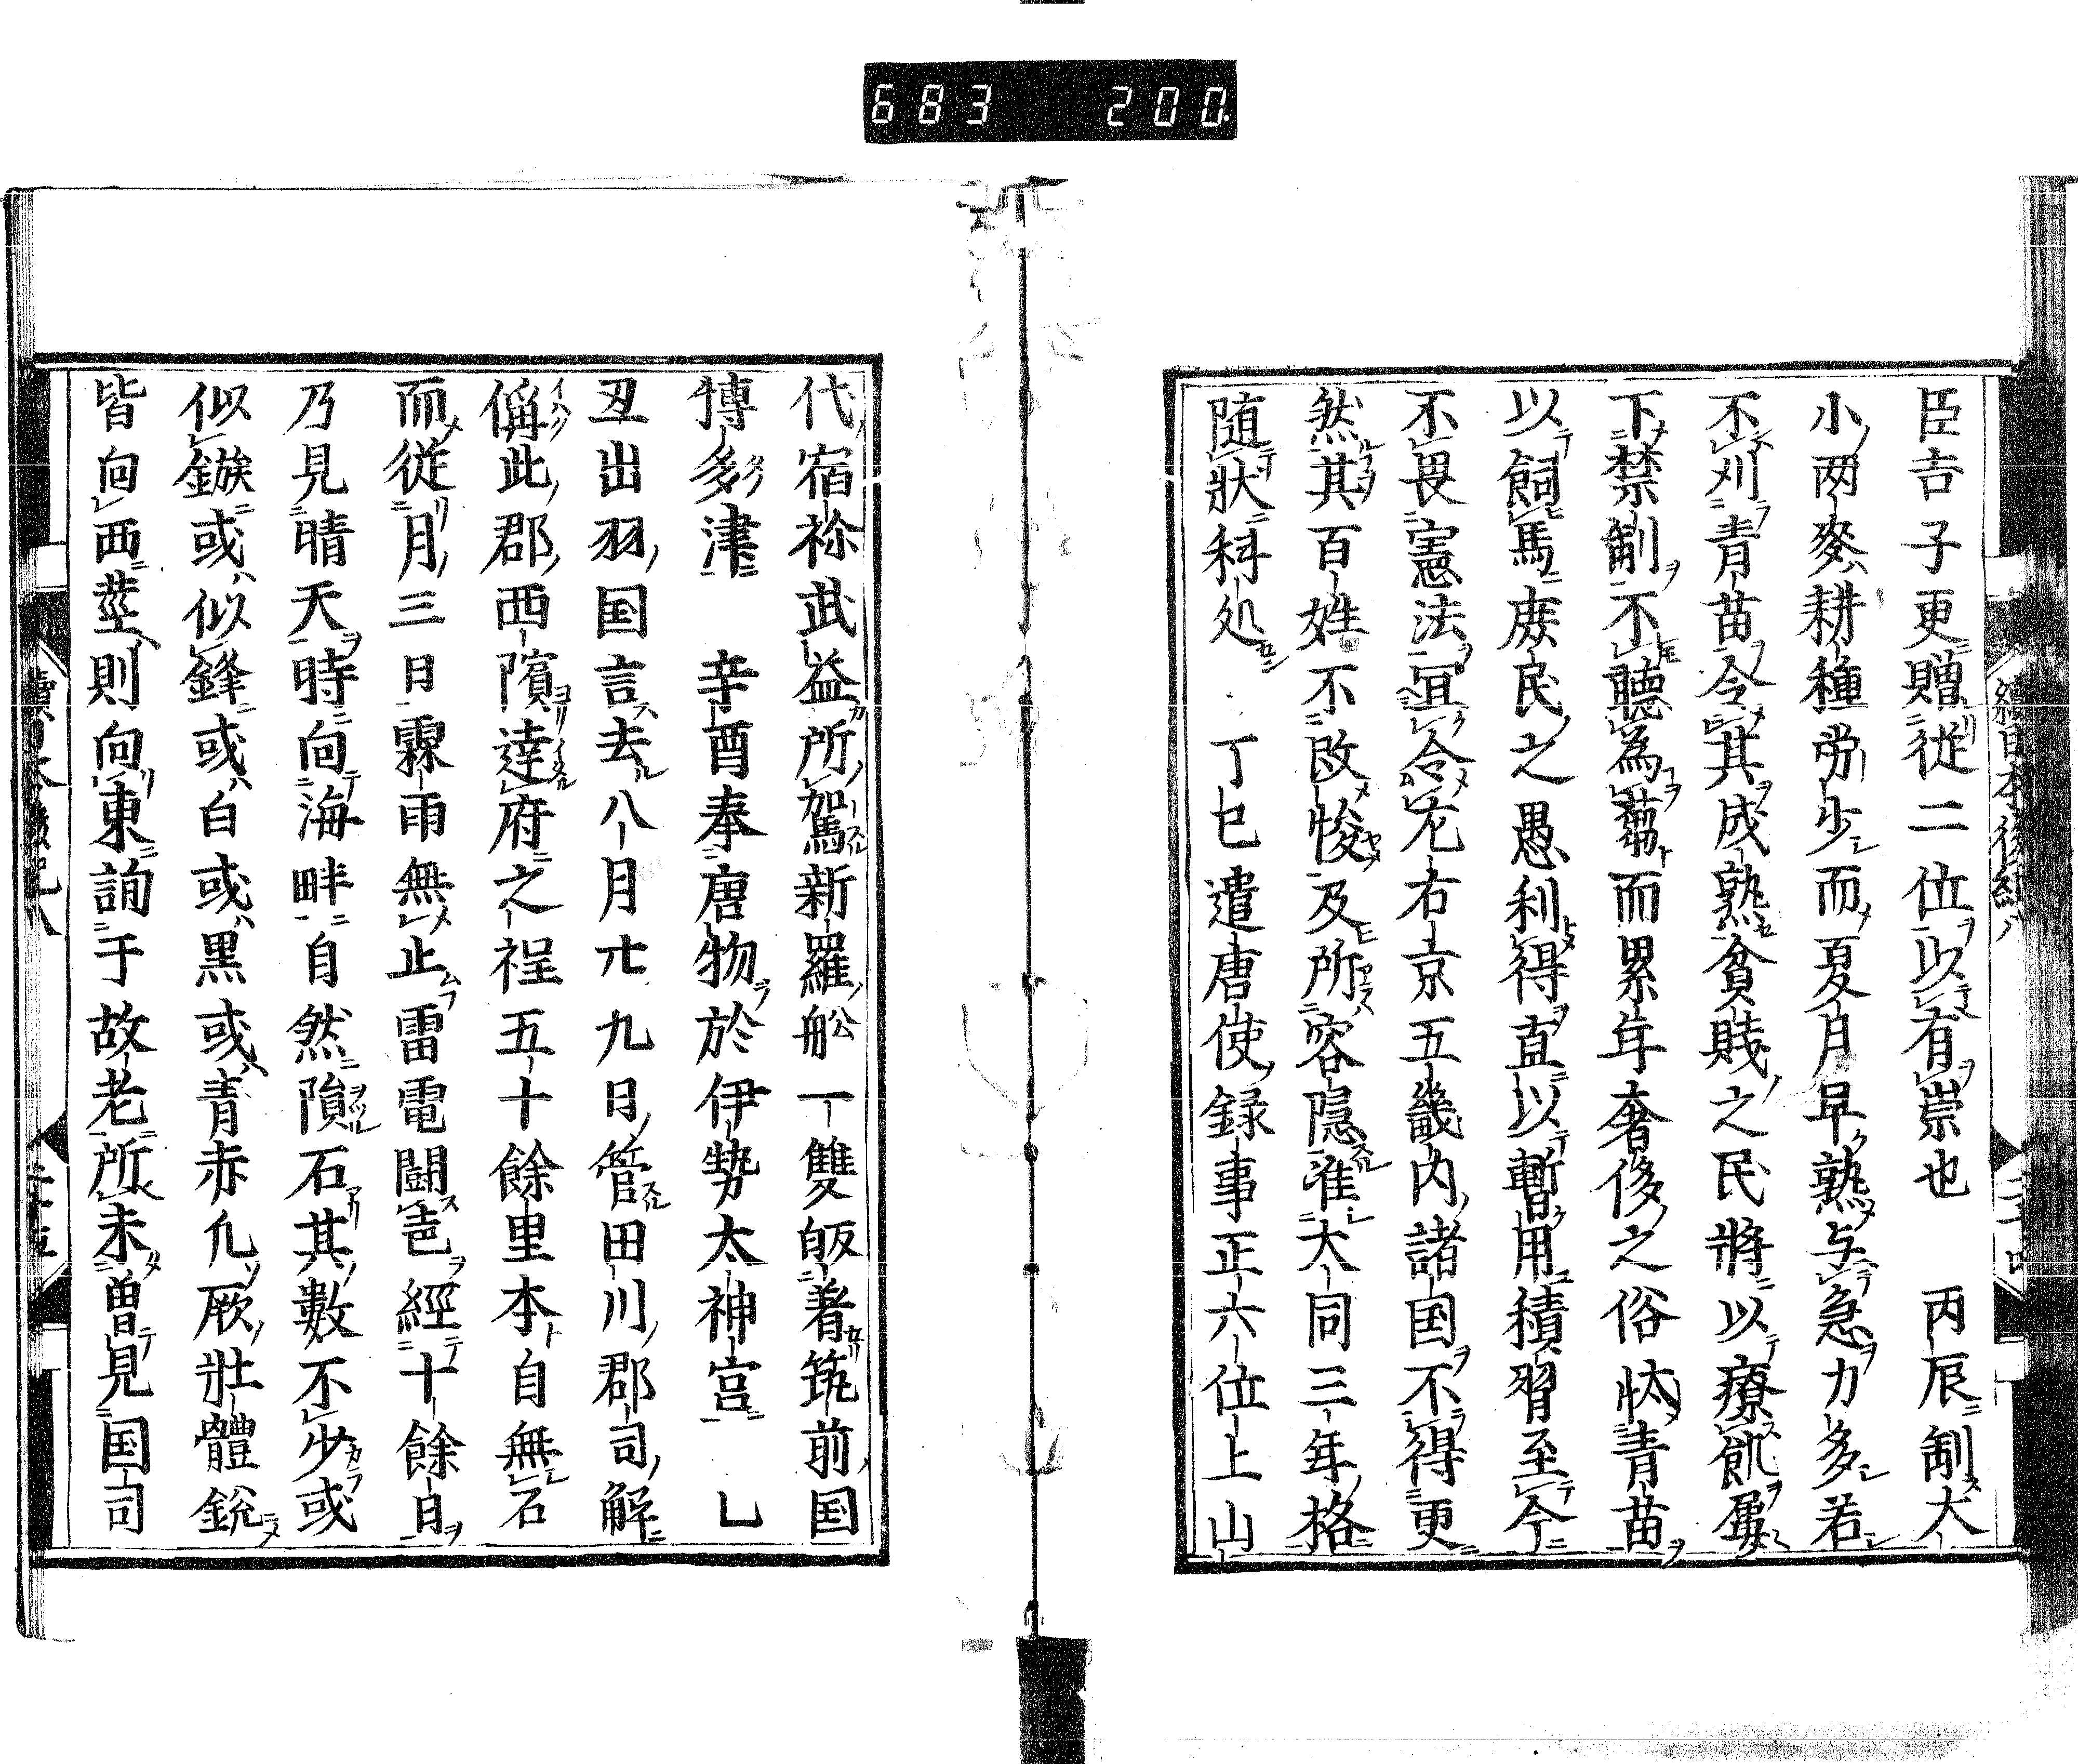 683 200
臣吉子更贈従二位以有崇也　丙辰制大
小両麥耕種労少而夏月早熟与急力多若
不刈青苗令其成熟貧賎之民將以療飢屡
下禁制不聴為蒭而累年奢侈之俗忲青苗
以飼馬庶民之愚利得直以暫用積習至今
不畏憲法宜令左右京五畿内諸国不得更
然其百姓不改悛及所容隠准大同三年格
随狀科処　丁巳遣唐使録事正六位上山
代宿祢武益所駕新羅舩一雙皈着筑前国
博多津　辛酉奉唐物於伊勢太神宮　乚
丑出羽国言去八月廿九日管田川郡司解
偁此郡西濱達府之程五十餘里本自無石
而従月三日霖雨無止雷電闘声經十餘日
乃見晴天時向海畔自然隕石其數不少或
似鏃或似鋒或白或黒或青赤凡厥壯體鋭
皆向西莖則向東詢于故老所未曽見国司
續日本後紀八